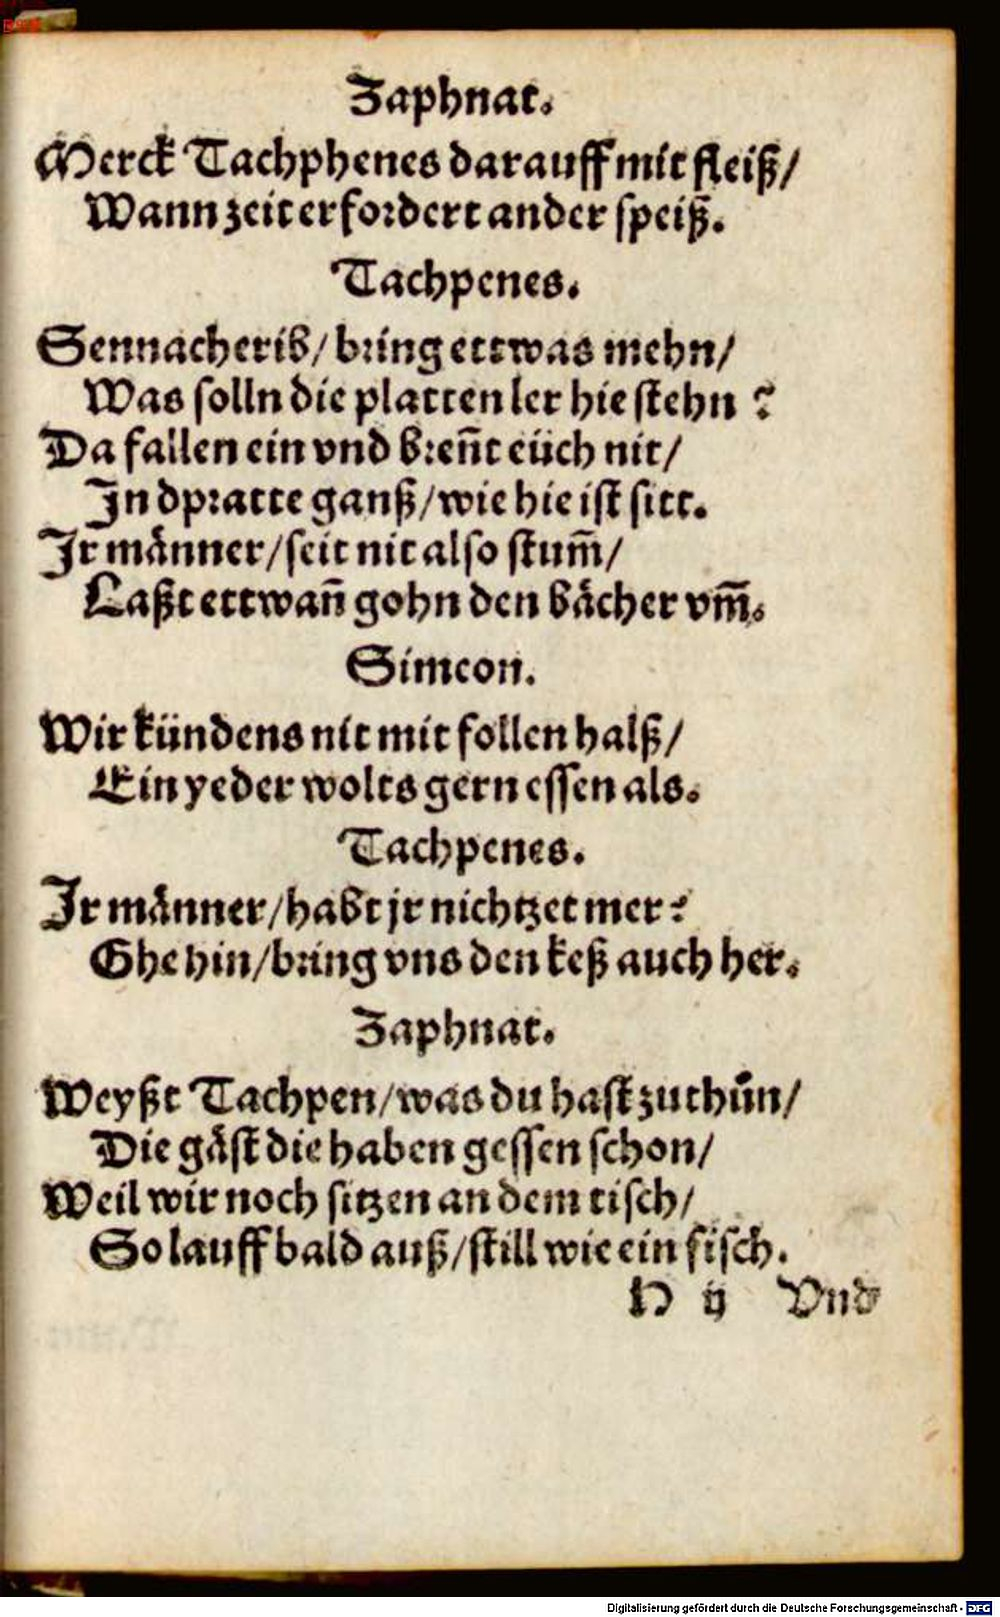 Zaphnat.
Merck Tachphenes darauff mit fleiß/
Wann zeit erfordert ander speiß.
Tachpenes.
Sennacherib/ bring ettwas mehn/
Was solln die platten ler hie stehn ?
Da fallen ein vnd breñt eüch nit/
In dpratte ganß/ wie hie ist sitt.
Ir männer/ seit nit also stum̃/
Laßt ettwañ gohn den bächer vm̃.
Simeon.
Wir kündens nit mit follen halß/
Ein yeder wolts gern essen als.
Tachpenes.
Ir männer/ habt jr nichtzet mer?
Ghe hin/ bring vns den keß auch her.
Zaphnat.
Weyßt Tachpen/ was du hast zuthůn/
Die gäst die haben gessen schon/
Weil wir noch sitzen an dem tisch/
So lauff bald auß/ still wie ein fisch.
H ij Vnd
Digitalisierung gefördert durch die Deutsche Forschungsgemeinschaft - DFG